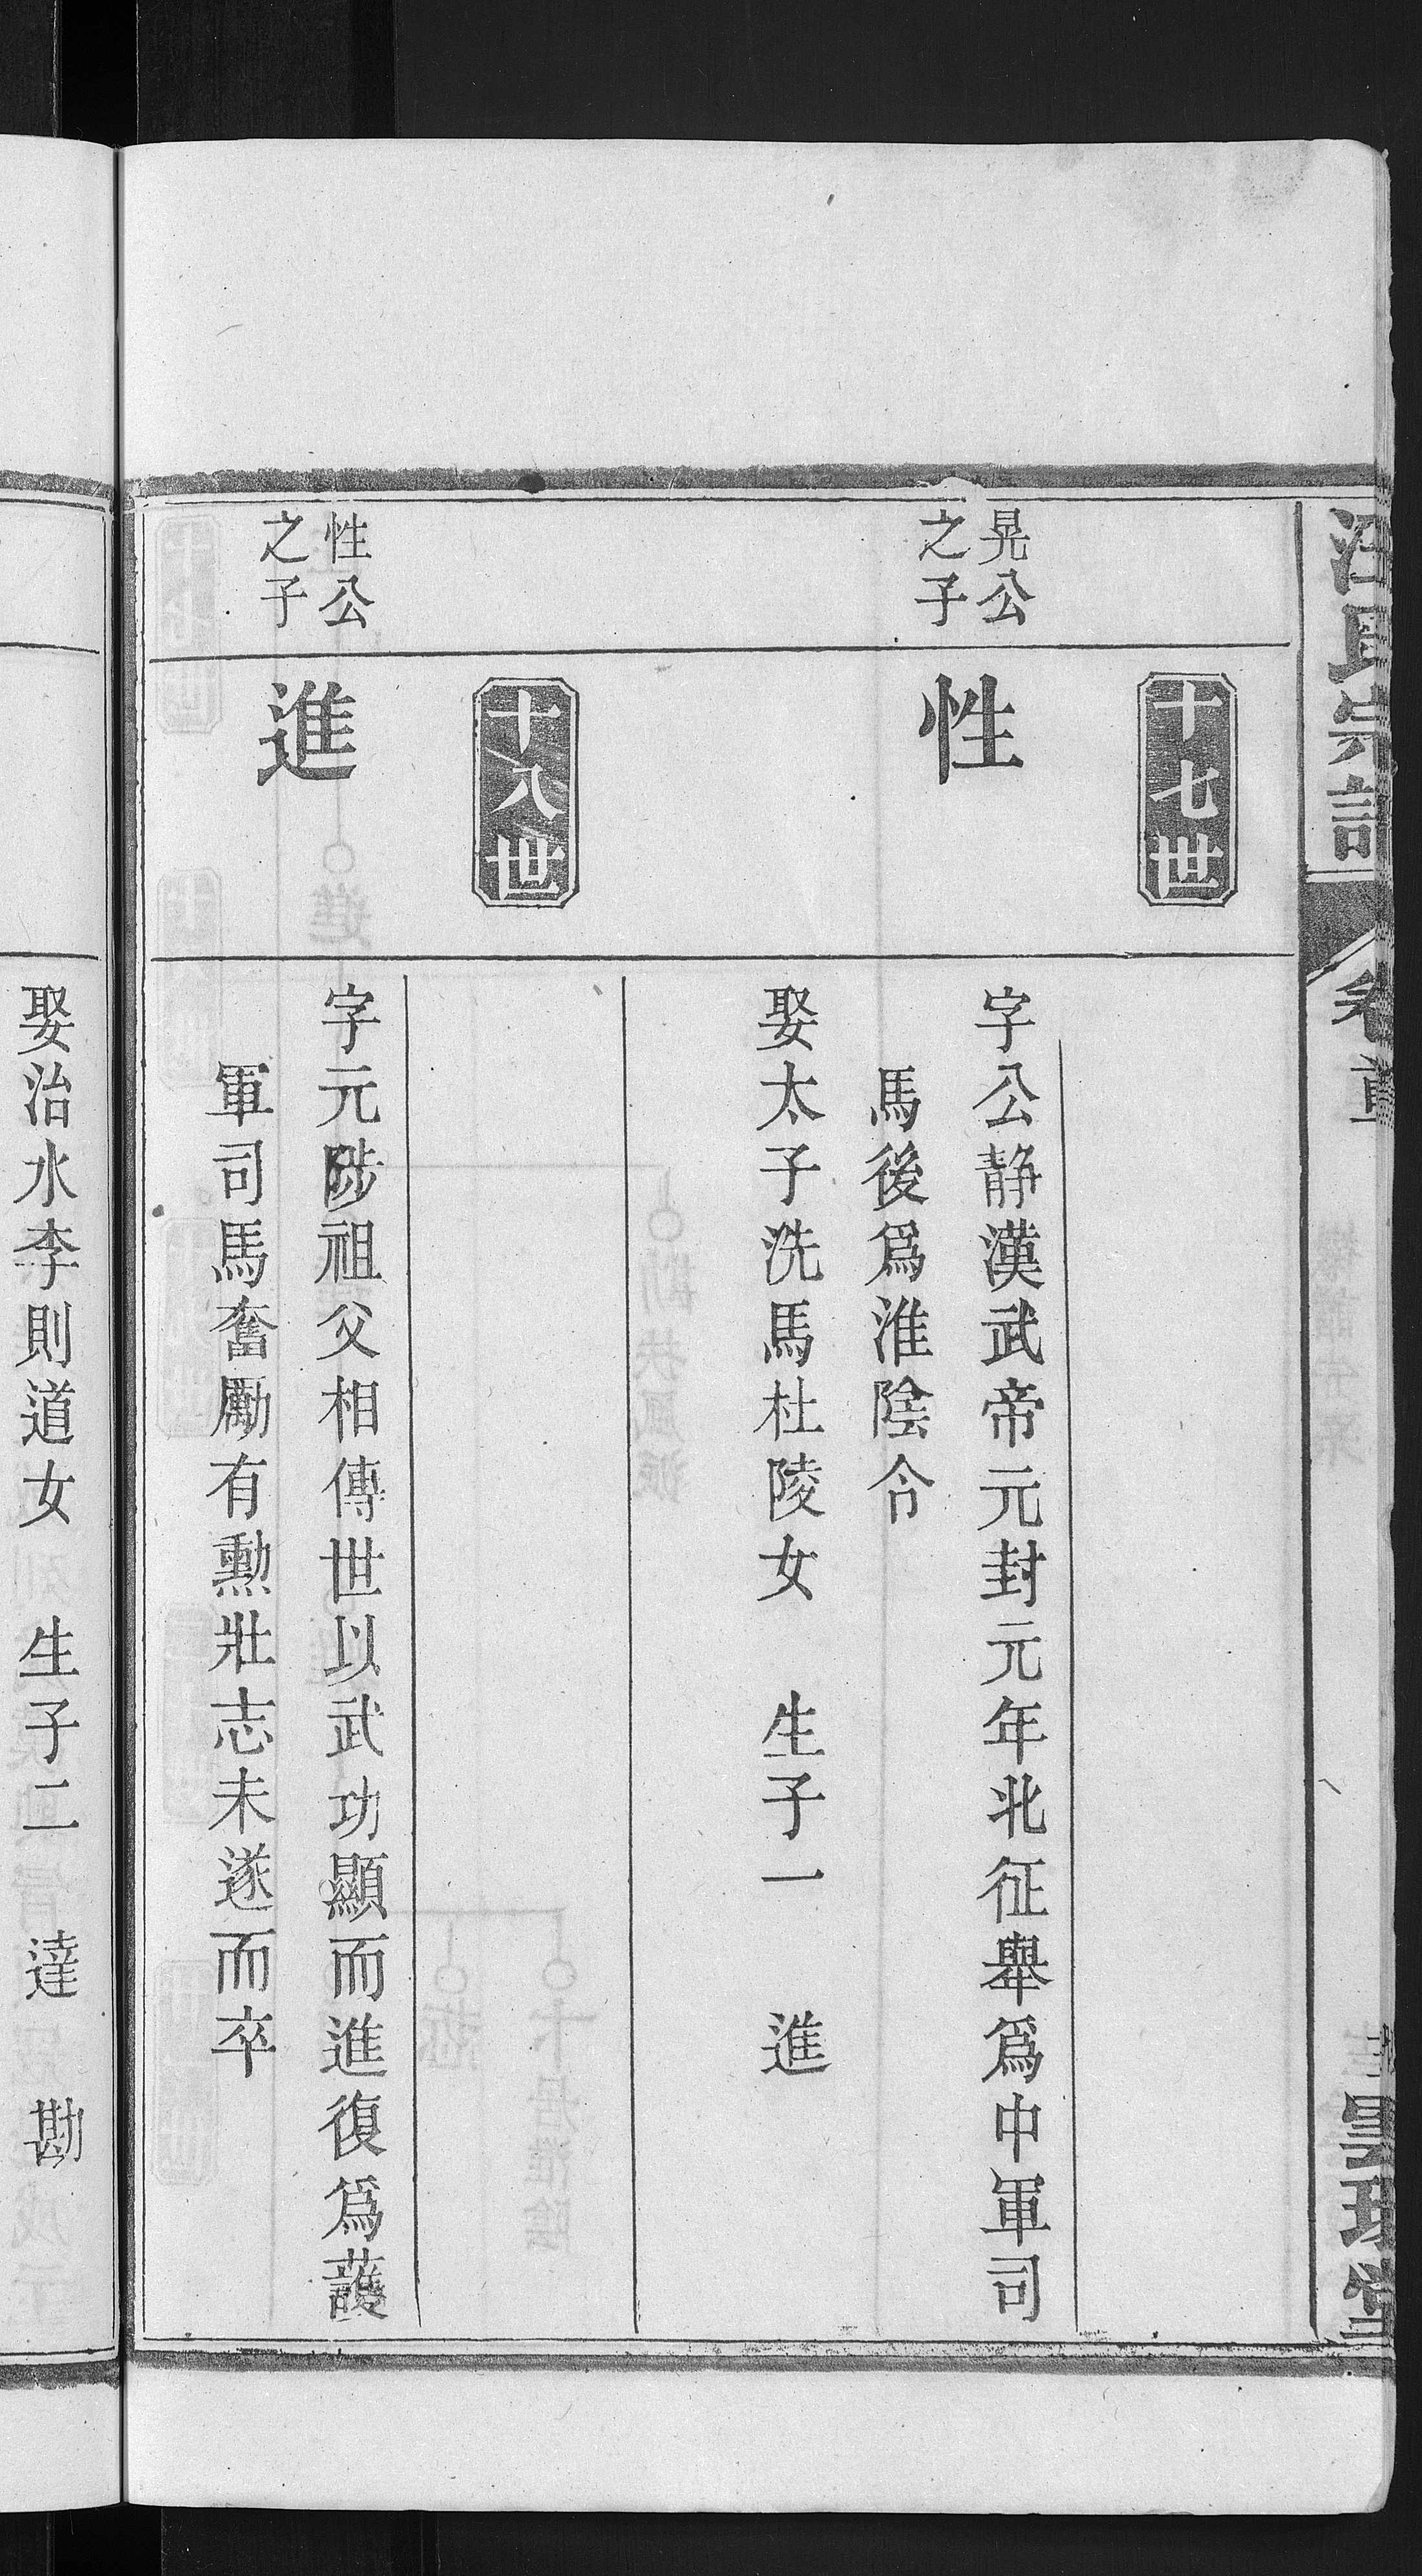 汪氏宗譜
卷首
十七世
晃公
之子
性
字公静漢武帝元封元年北征舉爲中軍司
馬後爲淮陰令
娶太子洗馬杜陵女　生子一　進
十八世
性公
之子
進
字元陟祖父相傳世以武功顯而進復爲護
軍司馬奮勵有勳壯志未遂而卒
娶治水李則道女　生子二　達　勘